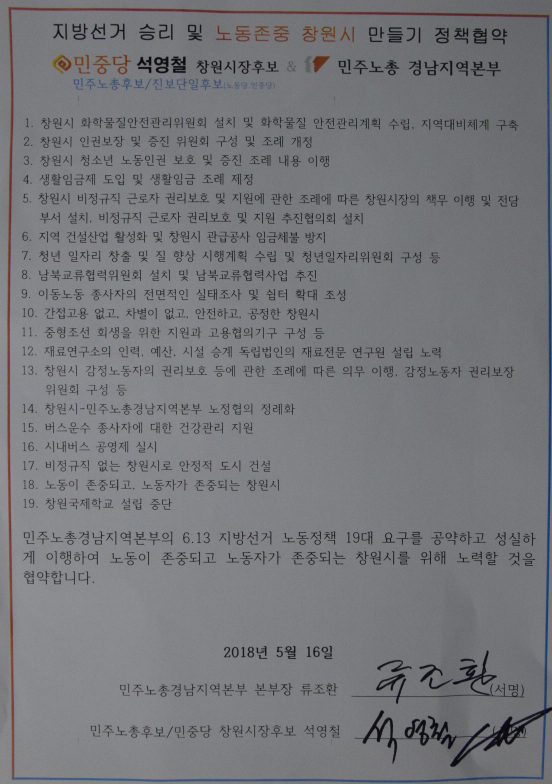 지방선거 승리 및 노동존중 창원시 만들기 정책협약
민중당 석영철 창원시장후보 & 민주노총 경남지역본부
민주노총후보/진보단일후보(노동당.민중당)
1. 창원시 화학물질안전관리위원회 설치 및 화학물질 안전관리계획 수립, 지역대비체계 구축
2. 창원시 인권보장 및 증진 위원회 구성 및 조례 개정
3. 창원시 청소년 노동인권 보호 및 증진 조례 내용 이행
4. 생활임금제 도입 및 생활임금 조례 제정
5. 창원시 비정규직 근로자 권리보호 및 지원에 관한 조례에 따른 창원시장의 책무 이행 및 전담
부서 설치, 비정규직 근로자 권리보호 및 지원 추진협의회 설치
6. 지역 건설산업 활성화 및 창원시 관급공사 임금체불 방지
7. 청년 일자리 창출 및 질 향상 시행계획 수립 및 청년일자리위원회 구성 등
8. 남북교류협력위원회 설치 및 남북교류협력사업 추진
9. 이동노동 종사자의 전면적인 실태조사 및 쉼터 확대 조성
10. 간접고용 없고, 차별이 없고, 안전하고, 공정한 창원시
11. 중형조선 회생을 위한 지원과 고용협의기구 구성 등
12. 재료연구소의 인력, 예산, 시설 승계 독립법인의 재료전문 연구원 설립 노력
13. 창원시 감정노동자의 권리보호 등에 관한 조례에 따른 의무 이행, 감정노동자 권리보장
위원회 구성 등
14. 창원시-민주노총경남지역본부 노정협의 정례화
15. 버스운수 종사자에 대한 건강관리 지원
16. 시내버스 공영제 실시
17. 비정규직 없는 창원시로 안정적 도시 건설
18. 노동이 존중되고, 노동자가 존중되는 창원시
19. 창원국제학교 설립 중단
민주노총경남지역본부의 6.13 지방선거 노동정책 19대 요구를 공약하고 성실하
게 이행하여 노동이 존중되고 노동자가 존중되는 창원시를 위해 노력할 것을
협약합니다.
2018년 5월 16일
민주노총경남지역본부 본부장 류조환 류조환 (서명)
민주노총후보/민중당 창원시장후보 석영철 석영철